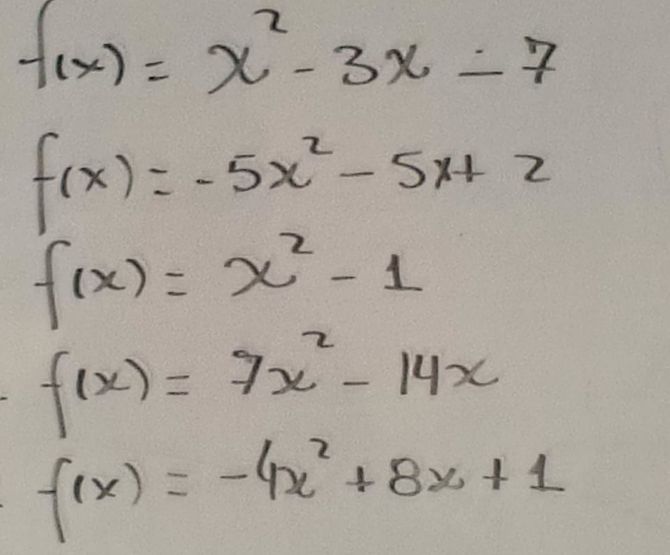 f(x) = x² - 3x - 7
f(x) = -5x² - 5x + 2
f(x) = x² - 1
f(x) = 7x² - 14x
f(x) = -4x² + 8x + 1